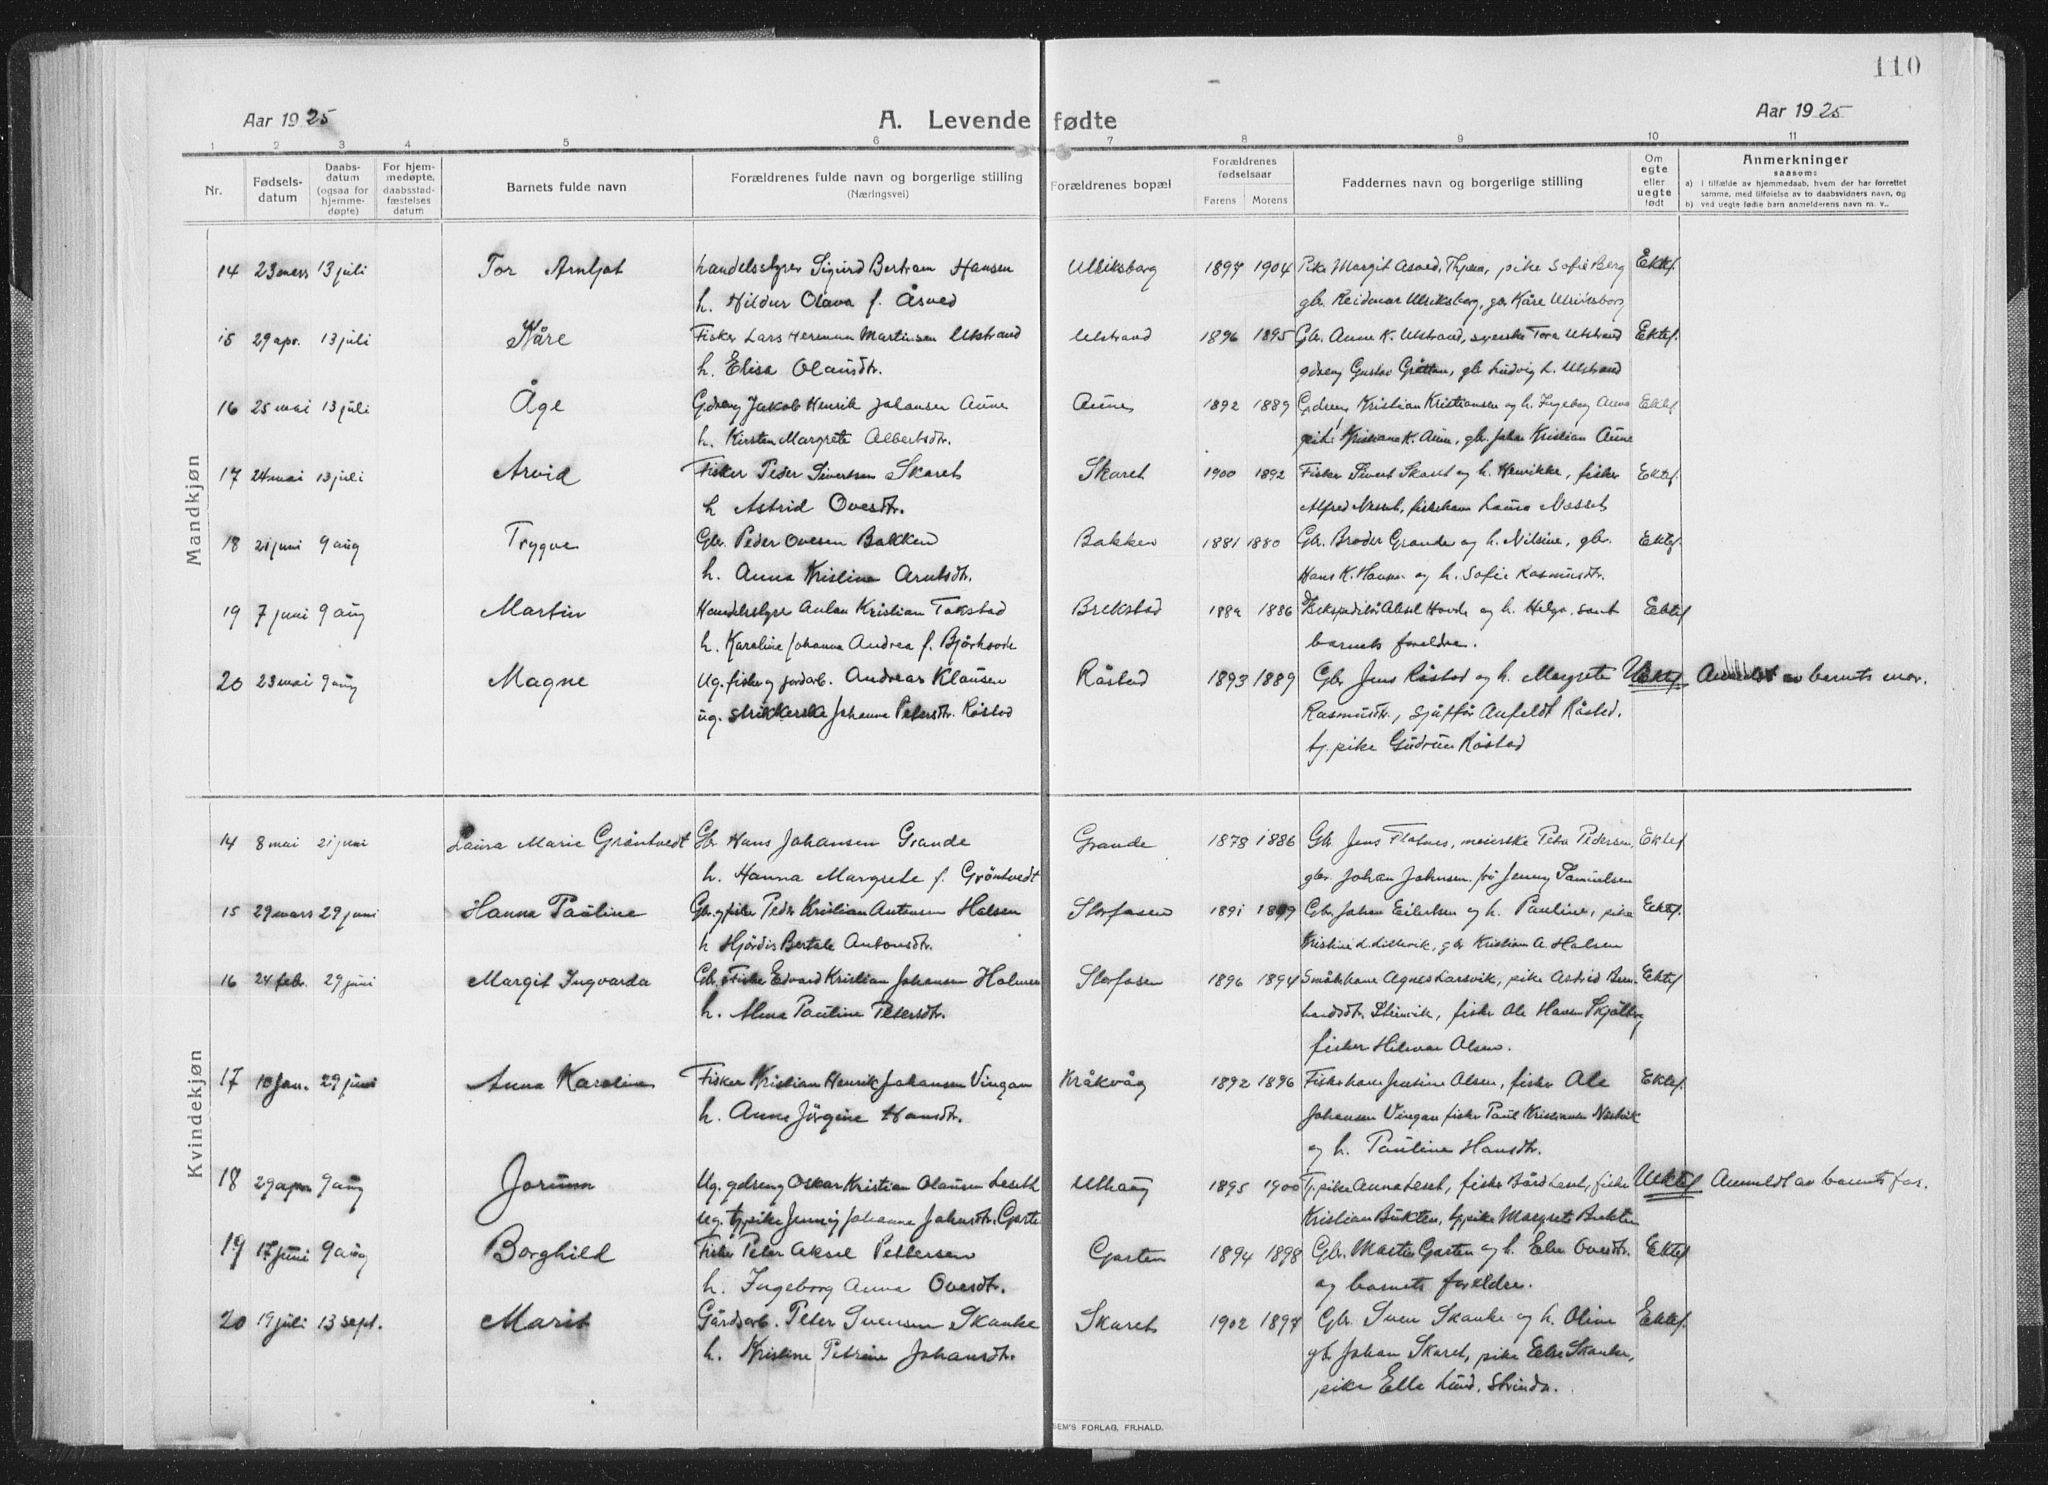 110
Aar 1925
A. Levende fødte
Aar 1925
1 2 3 4 5 6 7 8 9 10 11
Nr.
Fødsels-datum
Daabs-datum (ogsaa for hjemme-døpte)
For hjem-medøpte, daabsstad-fæstelses datum
Barnets fulde navn
Forældrenes fulde navn og borgerlige stilling
(Næringsvei)
Forældrenes bopæl
Forældrenes fødselsaar
Farens Morens
Faddernes navn og borgerlige stilling
Om egte eller uegte født
Anmerkninger
saasom:
a) I tilfælde av hjemmedaab, hvem der har forrettet samme, med tilføielse av to daabsvidners navn, og
b) ved uegte fødte barn anmelderens navn m. v..
Mandkjøn
14 23 mars 13 juli Tor Arnljot handelsstyrer Sigurd Bertram Hansen Ulriksborg 1897 1904 Pike Margit Åsved, pike Sofie Berg Ektef.
h. Hildur Olava f. Åsved gbr. Reidmar Ulriksborg, gbr Kåre Ulriksborg
15 29 apr. 13 juli Kåre Fisker Lars Herman Martinsen Ulstrand Ulstrand 1896 1895 Gbr. Anne K. Ulstrand, syerske Tora Ulstrand Ektef.
h. Elisa Olausdtr. gdreng Gustav Gråttan, gbr Ludvig L. Ulstrand
16 25 mai 13 juli Åge Gdreng Jakob Henrik Johansen Aune Aune 1892 1889 Gdreng Kristian Kristiansen og h. Ingeborg Anna Ektef
h. Kirsten Margrete Albertsdtr. pike Kristiane K. Aune, gbr. Johan Kristian Aune
17 24 mai 13 juli Arvid Fisker Peder Sivertsen Skaret Skaret 1900 1892 Fisker Sivert Skaret og h. Henrikke, fisker Ektef.
h Astrid Ovesdtr. Alfred Nesset, fiskerkone Laura Nesset
18 21 juni 9 aug Trygve Gbr. Peder Ovesen Bakken Bakken 1881 1880 Gbr. Broder Grande og h. Nilsine, gbr. Ektef
h. Anna Kristine Arntsdtr. Hans K. Hansen og h. Sofie Rasmusdtr.
19 7 juni 9 aug Martin Handelsstyrer Anton Kristian Takstad Brekstad 1882 1886 Ekspeditør Aksel Hovde og h. Helga, samt Ektef
h. Karoline Johanna Andrea f. Bjørhovde barnets foreldre.
20 23 mai 9 aug Magne Ug. fisker og jordarb. Andreas Klausen Råstad 1893 1889 Gbr Jens Råstad og h. Margrete Uektef Anmeldt av barnets mor.
ug. strikkerske Johanna Petersdtr. Råstad Rasmusdtr., sjåfør Anfeldt Råstad.
tj. pike Gudrun Råstad
Kvindekjøn
14 8 mai 21 juni Laura Marie Gröntvedt Gbr Hans Johansen Grande Grande 1878 1886 Gbr. Jens Flatnes, meierske Petra Pedersen, Ektef
h. Hanna Margrete f. Gröntvedt gbr. Johan Johnsen, frü Jenny Samuelsen
15 29 mars 29 juni Hanna Pauline Gbr og fisker Peder Kristian Antonsen Halsen Storfosen 1891 1899 Gbr. Johan Eilertsen og h. Pauline, pike Ektef.
h Hjördis Bertale Antonsdtr. Kristine L. Lillevik, gbr Kristian A. Halsen
16 24 febr. 29 juni Margit Ingvarda Gbr. Fisker Edvard Kristian Johansen Holmen Storfosen 1896 1894 Småbr.kone Agnes Larsvik, pike Astrid Bern- Ektef
h. Alma Pauline Petersdtr. hardsdtr. Steinvik, fisker Ole Hansen Skjölberg
fisker Hilmar Olsen.
17 10 jan. 29 juni Anna Karoline Fisker Kristian Henrik Johansen Vingan Kråkvåg 1892 1896 Fiskerkone Jensine Olsen, fisker Ole Ektef.
h. Anna Jörgine Hansdtr. Johansen Vingan fisker Paul Kristiansen
og h. Pauline Hansdtr.
18 29 apr 9 aug Jorunn Ug. gdreng Oskar Kristian Olausen Leseth Uthaug 1895 1900 Tj.pike Anna Leset, fisker Bård Leset, fisker Uektef Anmeldt av barnets far.
ug. tj.pike Jenny Johanna Johnsdtr. Garten Kristian Bukten, tj.pike Margrete Bukten
19 17 juni 9 aug Borghild Fisker Peter Aksel Pettersen Garten 1894 1898 Gbr. Martin Garten og h. Elen Ovesdtr. Ektef
h. Ingeborg Anna Ovesdtr. og barnets foreldre.
20 19 juli 13 sept. Marit Gårdsarb. Peter Svensen Skanke Skaret 1902 1897 Gbr. Sven Skanke og h. Oline Ektef.
h. Kristine Petrine Johansdtr. gbr. Johan Skaret, pike Else Skanke,
pike Ella Lund, Strinda.
SEM'S FORLAG, FR.HALD.